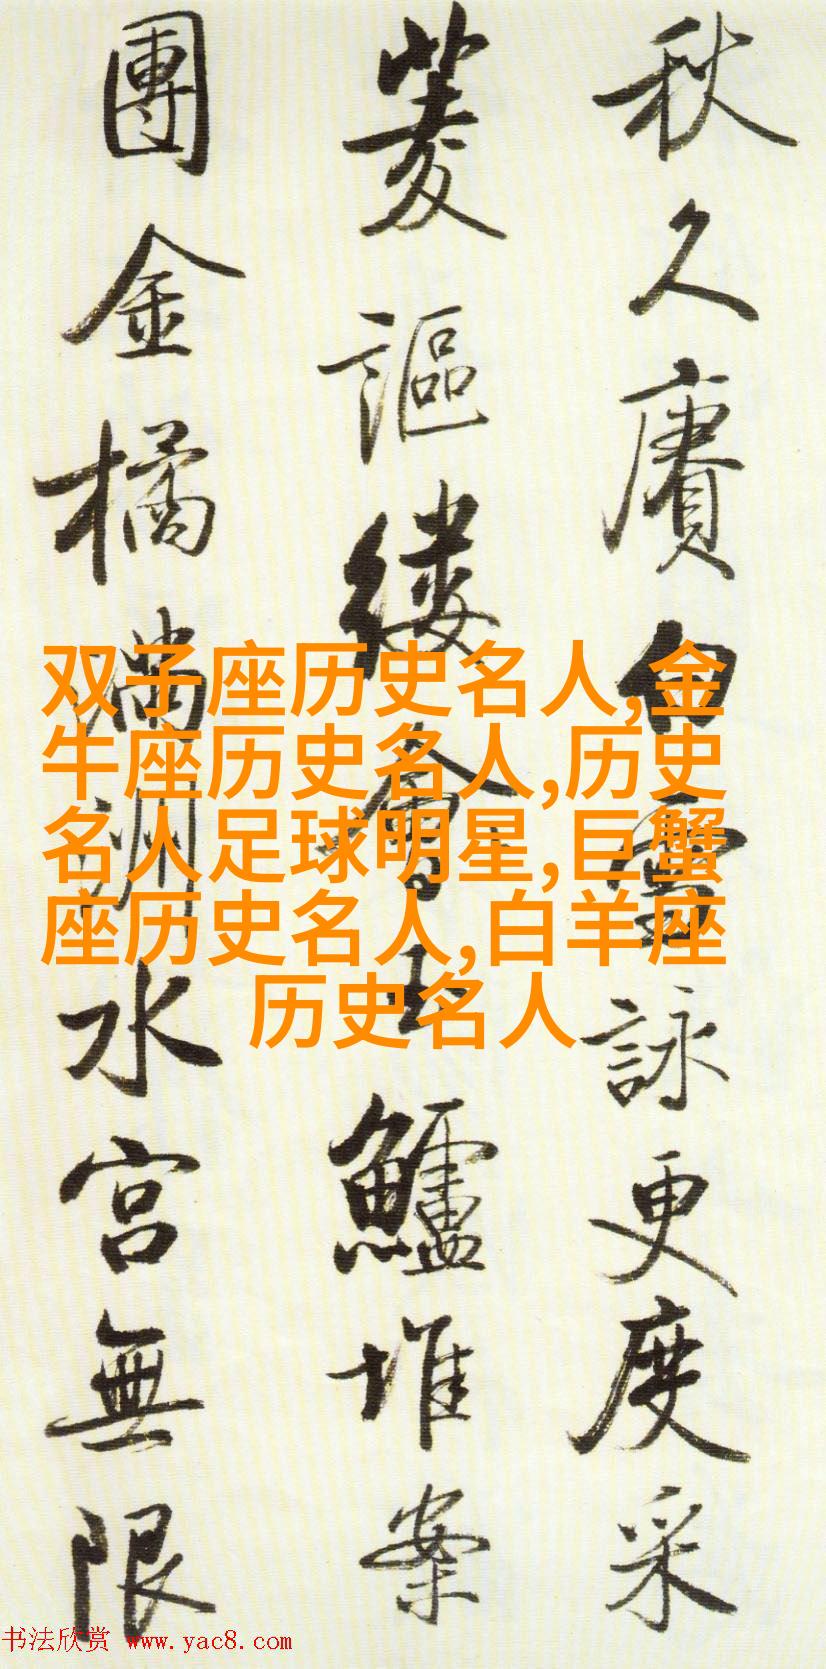 秋久賡白雪詠更度采
菱謳縷會玉鱸堆案
團金橘滿洲水宮無限
双子座历史名人,金
牛座历史名人,历史
名人足球明星,巨蟹
座历史名人,白羊座
历史名人
书法欣赏 www.yac8.com